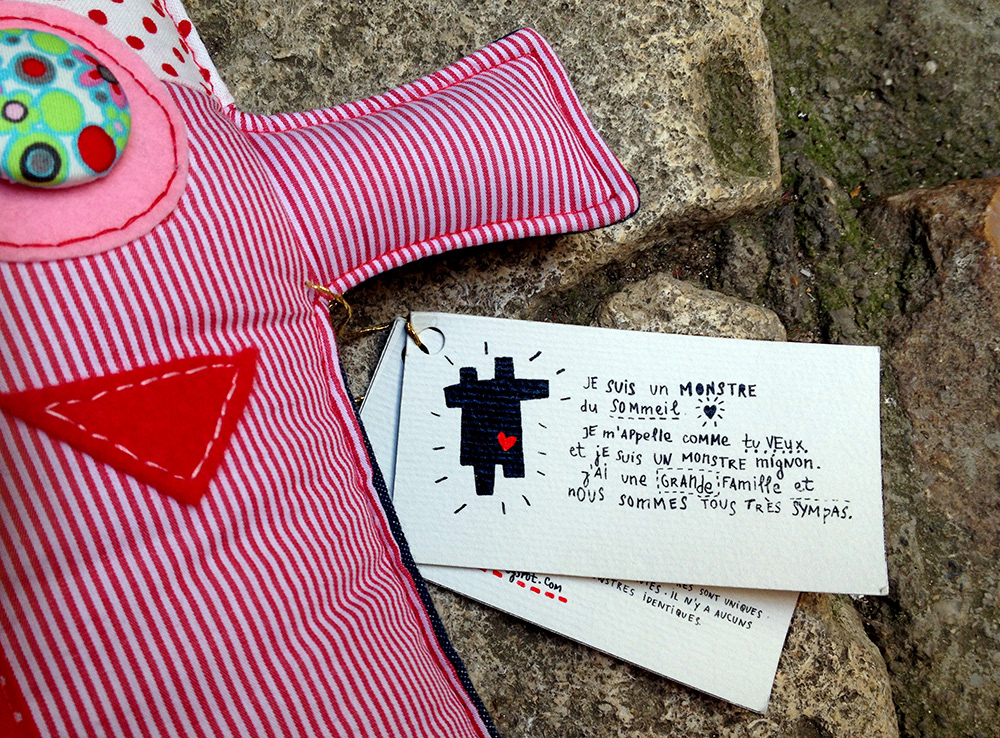 JE SUIS UN MONSTRE
du SOMMEIL
JE m'APPELLE COMME tu VEUX
et JE SUIS UN MONSTRE mignon.
J'AI UNE GRANDE FAMILLE et
NOUS SOMMES TOUS TRÈS SYMPAS.
.com
SONT UNIQUES.
IL N'Y A AUCUNS
IDENTIQUES.